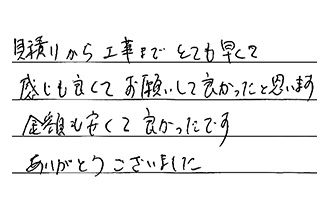 見積りから工事までとても早くて
感じも良くてお願いして良かったと思います
金額も安くて良かったです
ありがとうございました